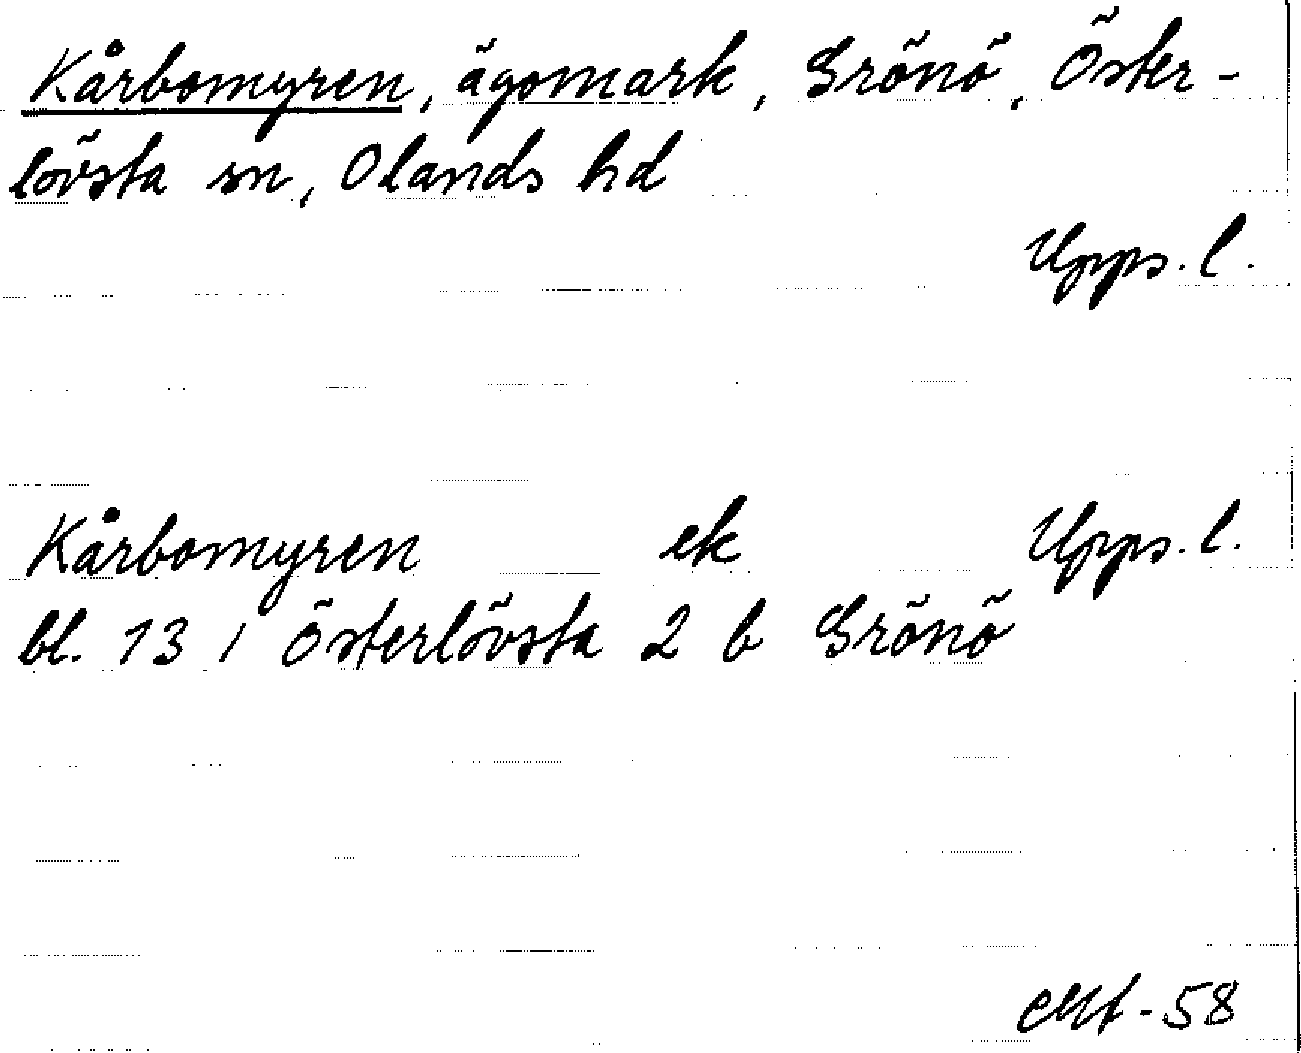 Kårbomyren, ägomark, Grönö, Öster-
lövsta sn, Olands hd
Upps. l.
Kårbomyren ek Upps. l.
bl. 13 / Österlövsta 2 b Grönö
-58